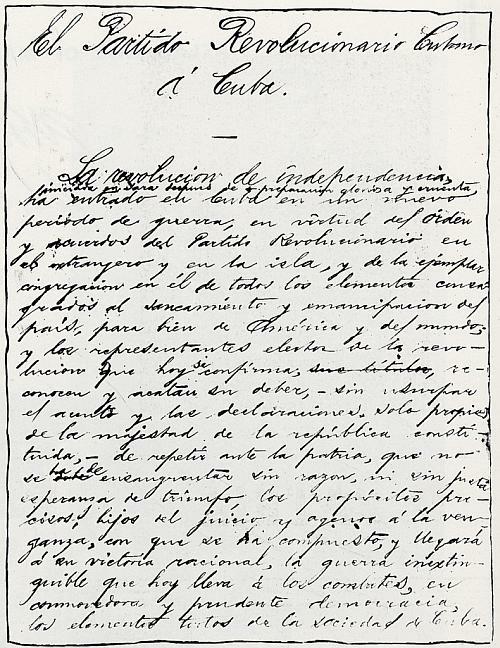 El Partido Revolucionario Cubano
á Cuba.
La revolucion de independencia,
iniciada en Yara despues de preparacion gloriosa y cruenta,
ha entrado en Cuba en un nuevo
periodo de guerra, en virtud del órden
y acuerdos del Partido Revolucionario en
el extranjero y en la isla, y de la ejemplar
congregacion en él de todos los elementos consa-
grados al saneamiento y emancipacion del
país, para bien de América y del mundo;
y los representantes electos de la revo-
lucion que hoy se confirma, re-
conocen y acatan su deber, - sin usurpar
el acento y las declaraciones solo propias
de la majestad de la república consti-
tuida, - de repetir ante la patria, que no
se ha de ensangrentar sin razon, ni sin justa
esperanza de triunfo, los propósitos pre-
cisos, hijos del juicio y agenos á la ven-
ganza, con que se ha compuesto, y llegará
á su victoria racional, la guerra inextin-
guible que hoy lleva á los combates, en
conmovedora y prudente democracia,
los elementos todos de la sociedad de Cuba.